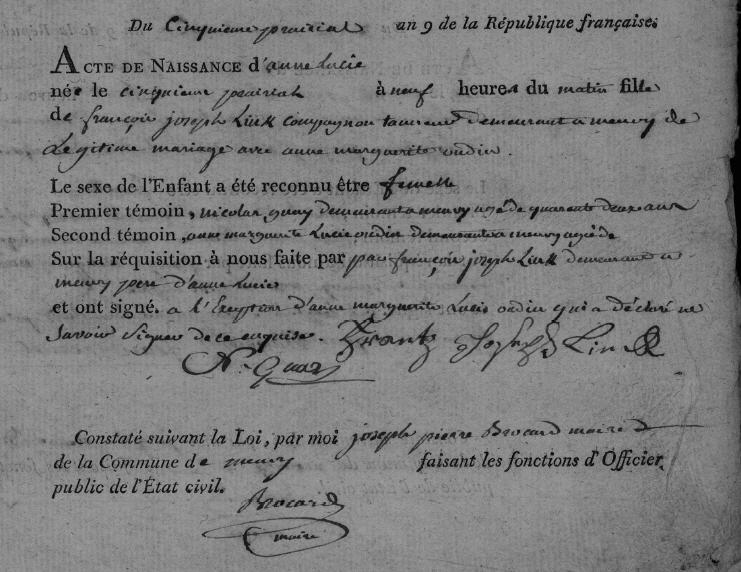 Du Cinquieme prairial an 9 de la République française.
ACTE DE NAISSANCE d'anne Lucie
née le cinquieme prairial à neuf heures du matin fille
de françois joseph Linck compagnon tanneur demeurant a meuvy de
Legitime mariage avec anne marguerite oudin.
Le sexe de l'Enfant a été reconnu être femelle
Premier témoin, nicolas quay demeurant a meuvy agé de quarante deux ans
Second témoin, anne marguerite Lucie oudin demeurante a meuvy agée de
Sur la réquisition à nous faite par par françois joseph Linck demeurant a
meuvy pere d'anne Lucie
et ont signé. a l'Exeption d'anne marguerite Lucie oudin qui a déclaré ne
Savoir Signer de ce enquise. Frantz Joseph Linck
N. Quay
Constaté suivant la Loi, par moi joseph pierre Brocard maire
de la Commune de meuvy faisant les fonctions d'Officier
public de l'État civil.
Brocard
maire